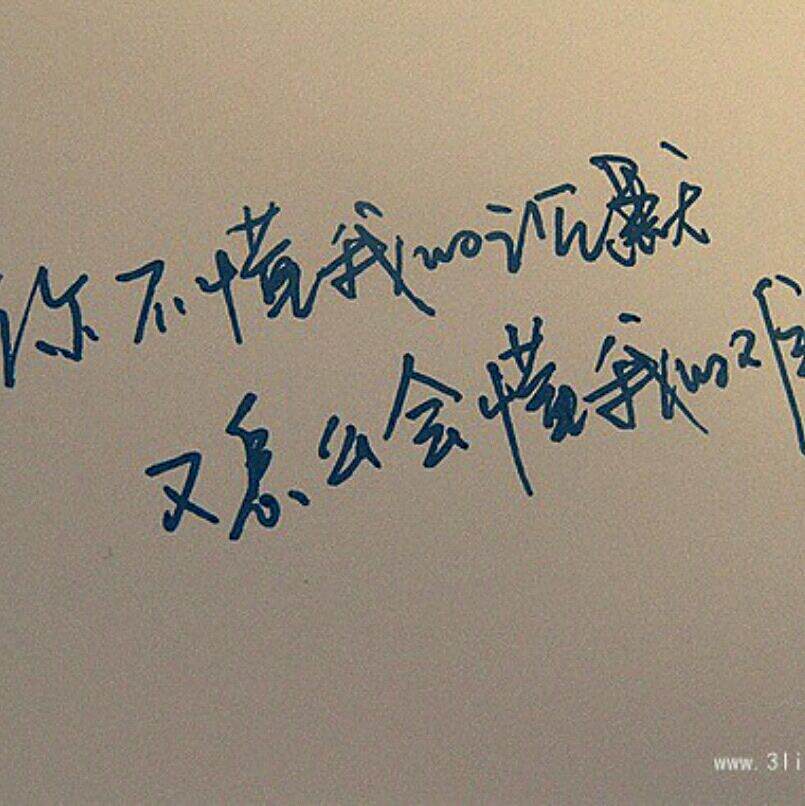 你不懂我的沉默
又怎么会懂我的难
www.3li